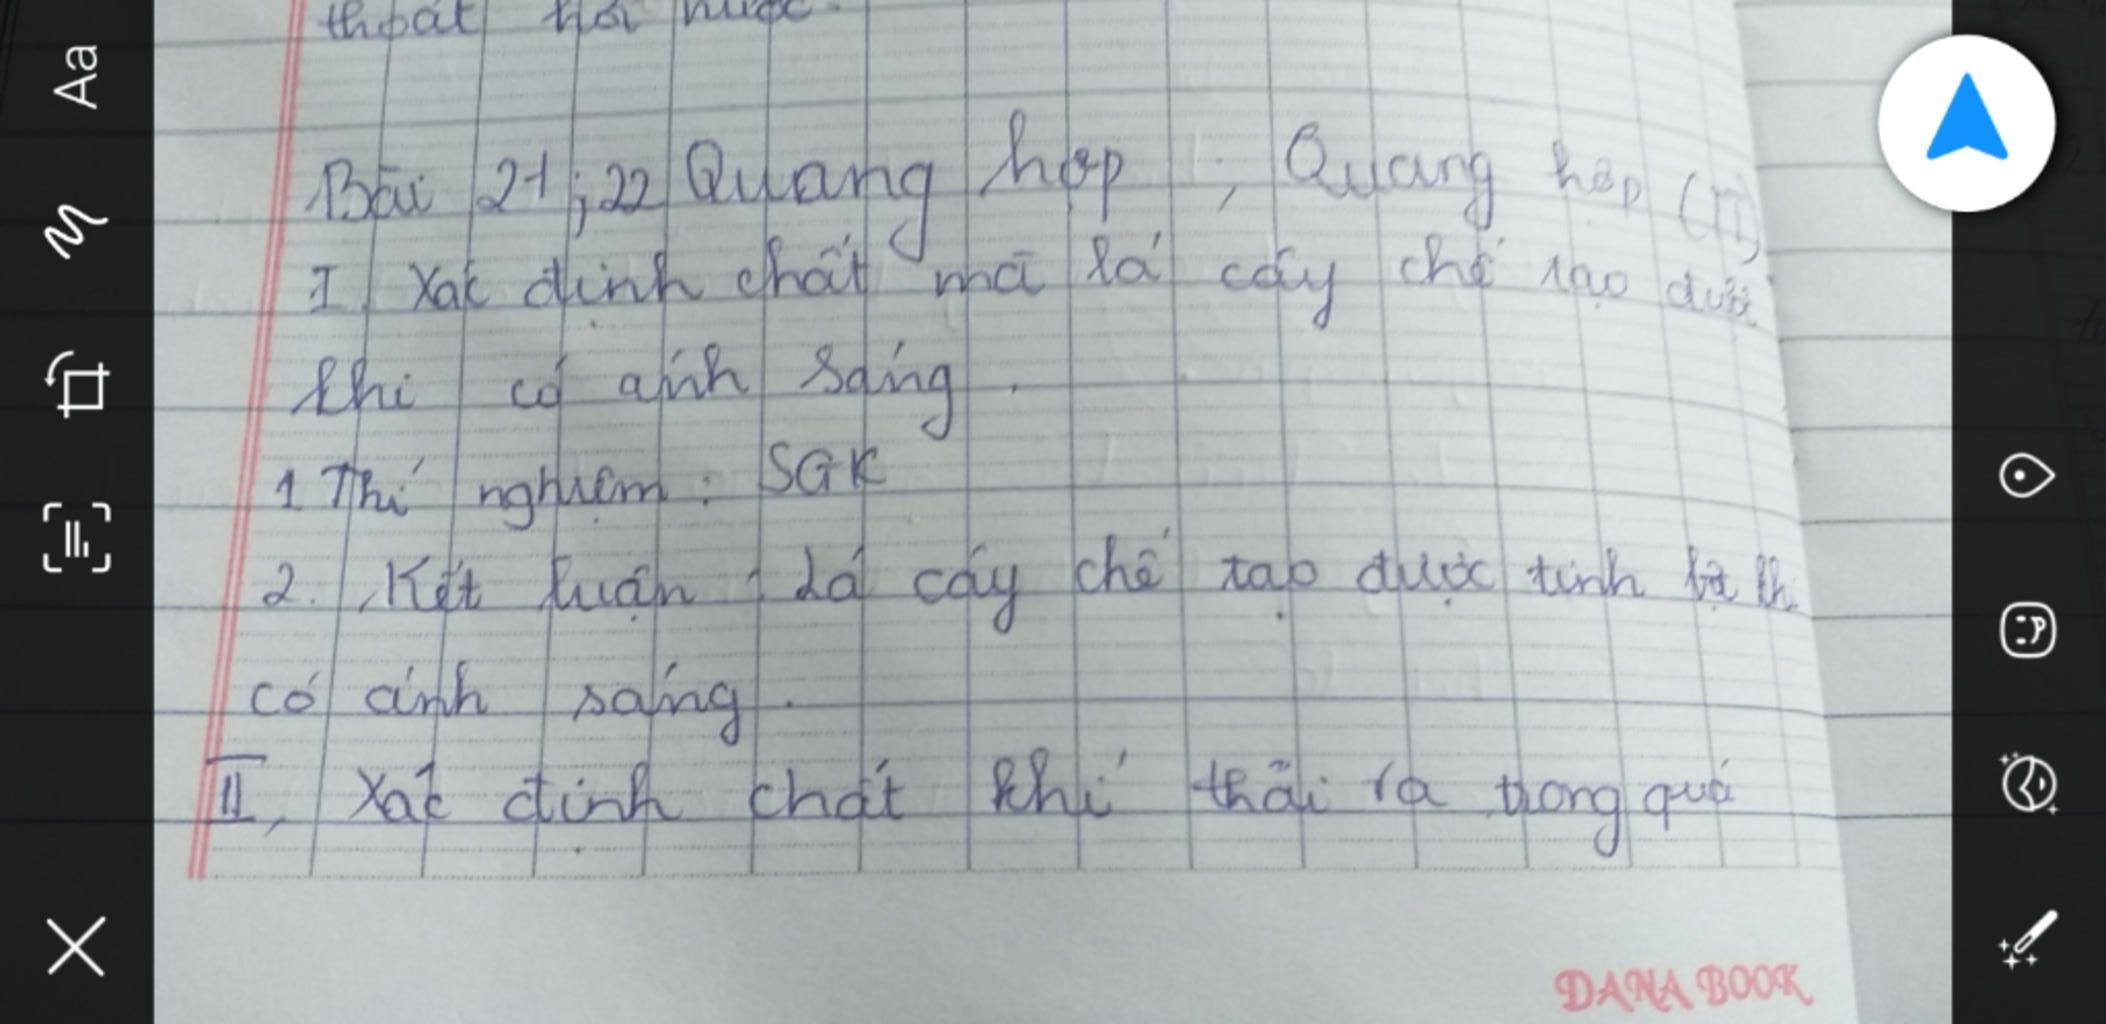 thoát hơi nước.
Bài 21; 22 Quang hợp ; Quang hợp (II)
I, Xác định chất mà lá cây chế tạo được
khi có ánh sáng.
1 Thí nghiệm : SGK
2. Kết luận : Lá cây chế tạo được tinh bột
có ánh sáng.
II, Xác định chất khí thải ra trong quá
DANA BOOK
Aa